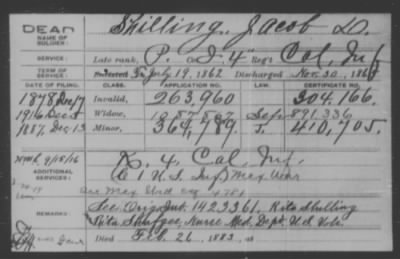 DEAD
NAME OF SOLDIER:
Shilling, Jacob D.
SERVICE:
Late rank, P. Co. I. 4" Reg't Cal. Inf
TERM OF SERVICE:
Enlisted July 19, 1862 Discharged Nov. 30, 186
DATE OF FILING. CLASS. APPLICATION NO. LAW. CERTIFICATE NO.
1878 Dec. 17 Invalid, 263,960 204.166.
1916 Widow, Sep. 891.336
1887. Dec. 13 Minor, 364,789 J. 410,705.
ADDITIONAL SERVICES:
K. 4. Cal. Inf.
C 1 U.S. Inf Mex War
See Mex Wid
REMARKS:
See Orig. Int. 1423361. Rita Shilling
Nurse Med. Dept. U.S. Vols.
Died Feb. 26, 1883, at